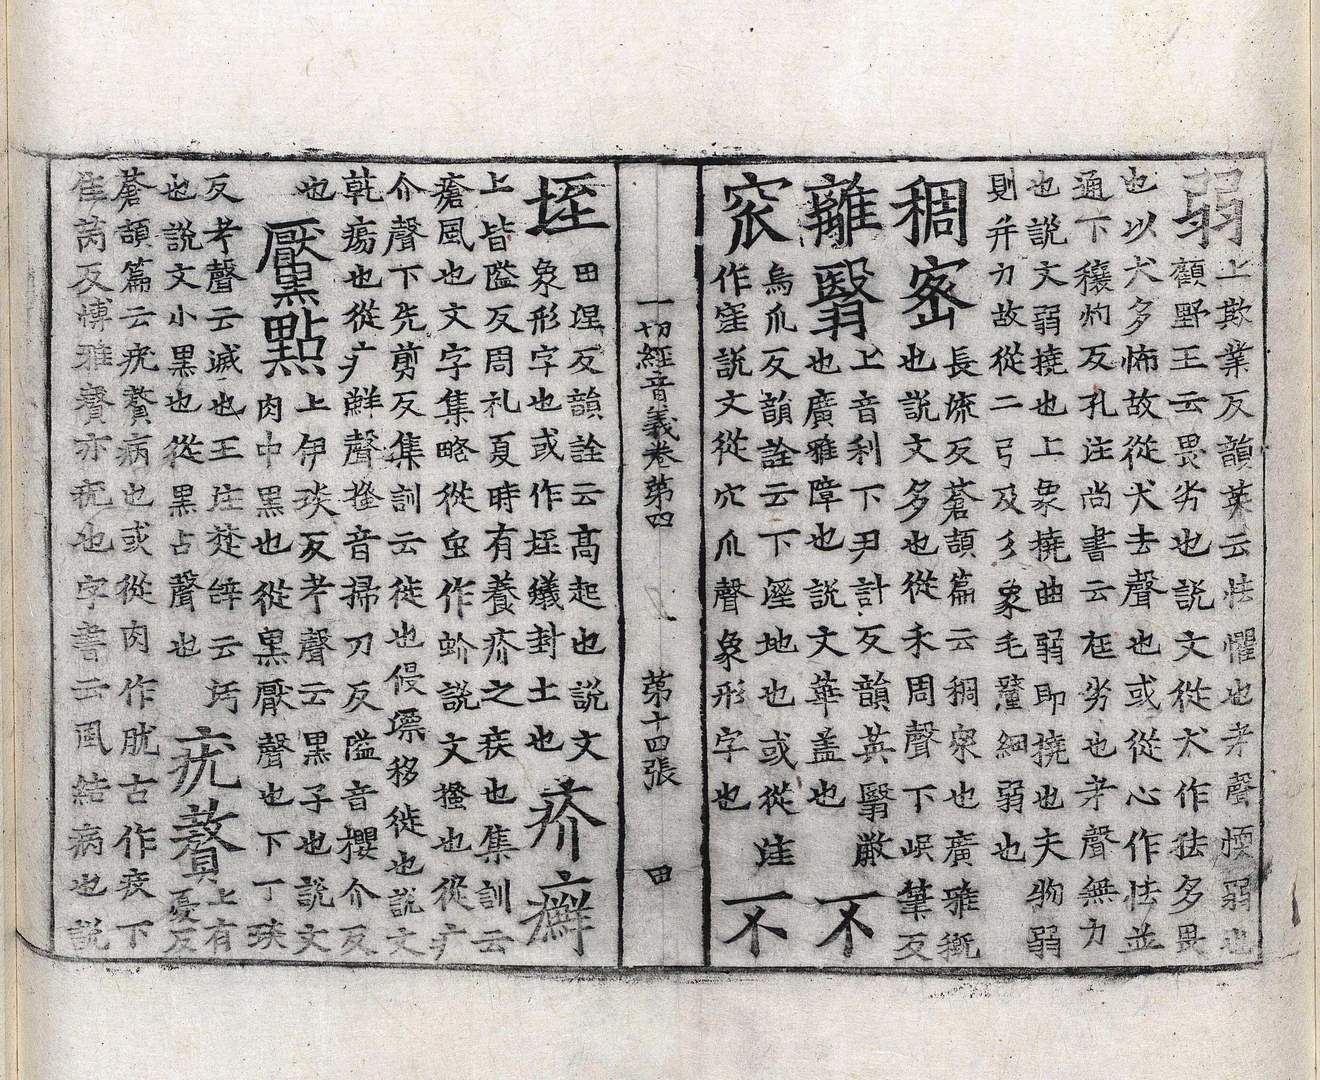 弱
上欺業反韻英云怯懼也考聲愞弱也
顧野王云畏劣也說文從犬作㹤多畏
也以犬多怖故從犬去聲也或從心作怯並
通下穰灼反孔注尚書云尫劣也考聲無力
也說文弱撓也上象撓曲弱即撓也夫物弱
則并力故從二弓及彡象毛氂細弱也
稠密
長流反蒼頡篇云稠衆也廣雅穊
也說文多也從禾周聲下岷筆反
離翳
上音利下尹計反韻英翳蔽
也廣雅障也說文華盖也
不
窊
烏爪反韻詮云下溼地也或從洼
作窪說文從穴爪聲象形字也
不
一切經音義卷第四 第十四張 四
垤
田涅反韻詮云高起也說文
象形字也或作垤蟻封土也
疥癬
上皆隘反周礼夏時有養疥之疾也集訓云
瘡風也文字集略從虫作蚧說文搔也從疒
介聲下先剪反集訓云徙也侵移徙也說文
乾瘍也從疒鮮聲搔音掃刀反隘音櫻介反
也
黶點
上伊琰反考聲云黑子也說文
肉中黑也從黑厭聲也下丁琰
反考聲云滅也王注楚辭云污
也說文小黑也從黑占聲也
疣贅
上有
憂反
蒼頡篇云疣贅病也或從肉作肬古作疫下
隹芮反博雅贅亦疣也字書云風結病也說